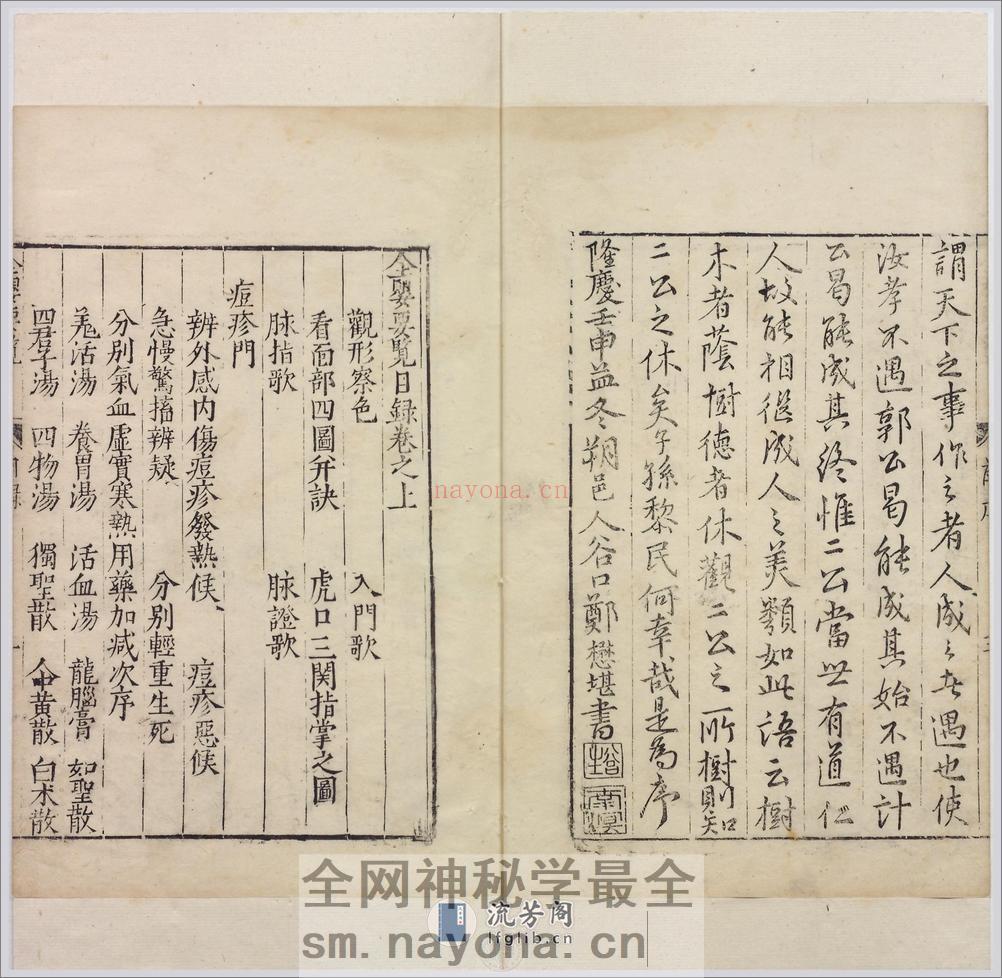 謂天下之事作之者人成之者遇也使
汝孝不遇郭公曷能成其始不遇計
公曷能成其終惟二公當世有道仁
人故能相繼成人之美歟如此語云樹
木者蔭樹德者休觀二公之所樹則知
二公之休矣子孫黎民何幸哉是為序
隆慶壬申孟冬朔邑人谷口鄭懋堪書
全嬰要覽目録卷之上
觀形察色 入門歌
看面部四圖并訣 虎口三関指掌之圖
脉指歌 脉證歌
痘疹門
辨外感内傷痘疹發熱候 痘疹惡候
急慢驚搐辨疑 分别輕重生死
分别氣血虛實寒熱用藥加减次序
羗活湯 養胃湯 活血湯 龍腦膏 如聖散
四君子湯 四物湯 獨聖散 人中黄散 白术散
nayona.cn
全网神秘学最全
流芳阁
lfglib.cn
sm.nayona.cn